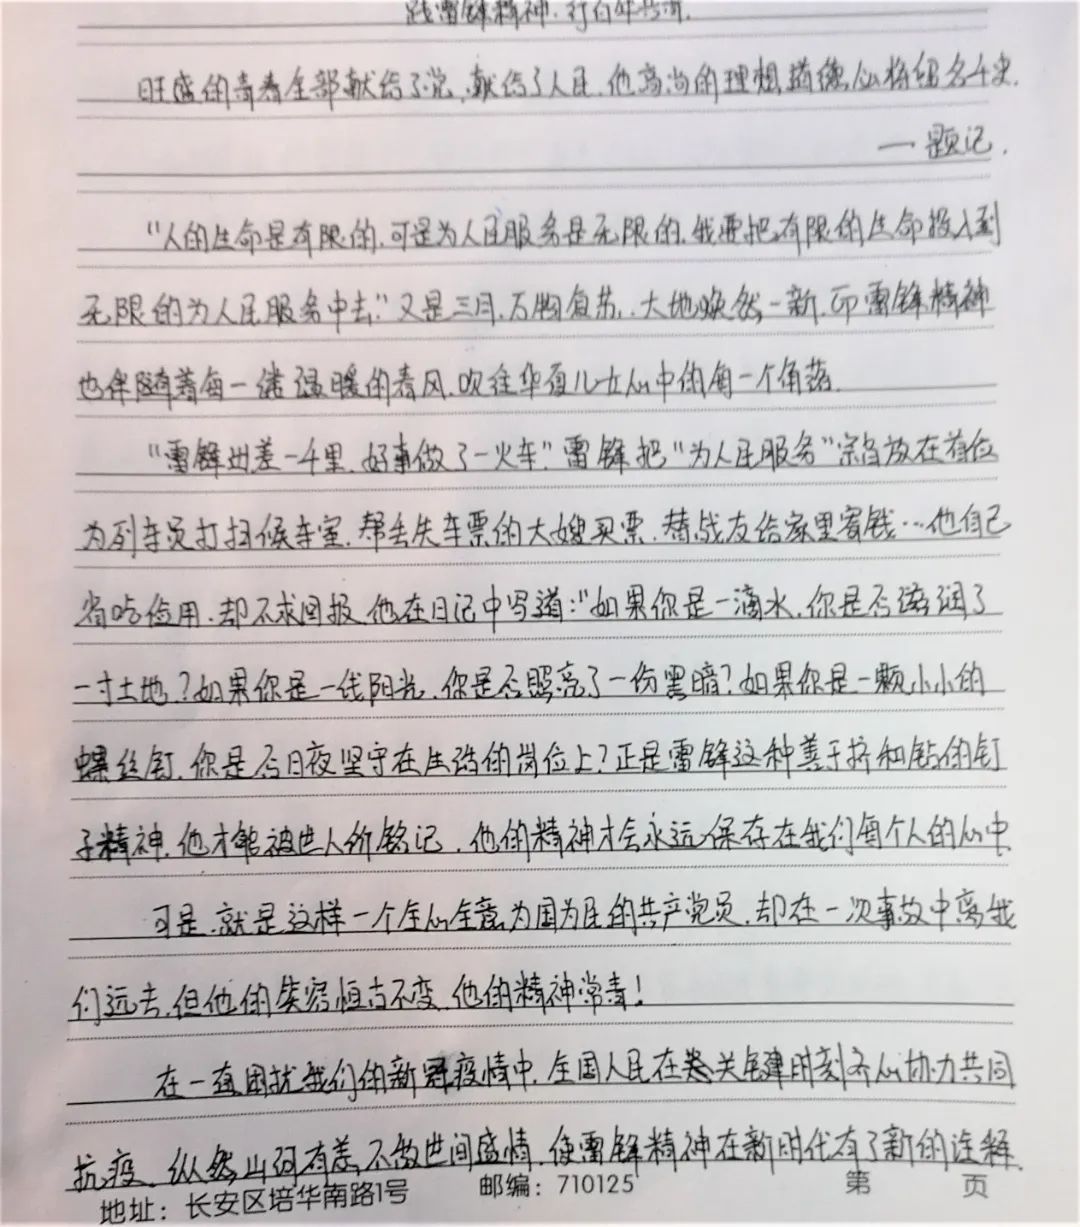 践雷锋精神.行百年共青.
旺盛的青春全部献给了党.献给了人民.他高尚的理想道德.必将留名千史.
一题记.
“人的生命是有限的.可是为人民服务是无限的.我要把有限的生命投入到
无限的为人民服务中去.”又是三月.万物复苏.大地焕然一新.而雷锋精神
也伴随着每一缕温暖的春风.吹往华夏儿女心中的每一个角落.
“雷锋出差一千里.好事做了一火车.”雷锋把“为人民服务”宗旨放在首位
为列车员打扫候车室.帮丢失车票的大嫂买票.替战友给家里寄钱…他自己
省吃俭用.却不求回报.他在日记中写道:“如果你是一滴水.你是否滋润了
一寸土地?如果你是一线阳光.你是否照亮了一份黑暗?如果你是一颗小小的
螺丝钉.你是否日夜坚守在生活的岗位上?正是雷锋这种善于挤和钻的钉
子精神.他才能被世人所铭记.他的精神才会永远保存在我们每个人的心中
可是.就是这样一个全心全意为国为民的共产党员.却在一次事故中离我
们远去.但他的笑容恒古不变.他的精神常青!
在一直困扰我们的新冠疫情中.全国人民在关键时刻齐心协力共同
抗疫.纵然山河有恙.不散世间盛情.使雷锋精神在新时代有了新的诠释.
地址:长安区培华南路1号 邮编:710125 第 页